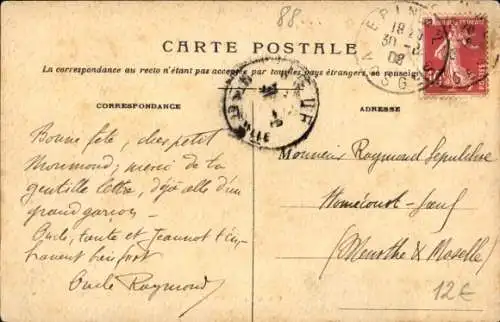 88.
CARTE POSTALE
La correspondance au recto n'étant pas acceptée par tous les pays étrangers, se renseigner
CORRESPONDANCE
ADRESSE
Bonne fête, cher petit
Moumond; merci de ta
gentille lettre, déjà celle d'un
grand garçon.
Oncle, tante et Jeannot t'em-
brassent bien fort
Oncle Raymond
Monsieur Raymond Sépulchre
Homécourt-Joeuf
(Meurthe & Moselle)
12€